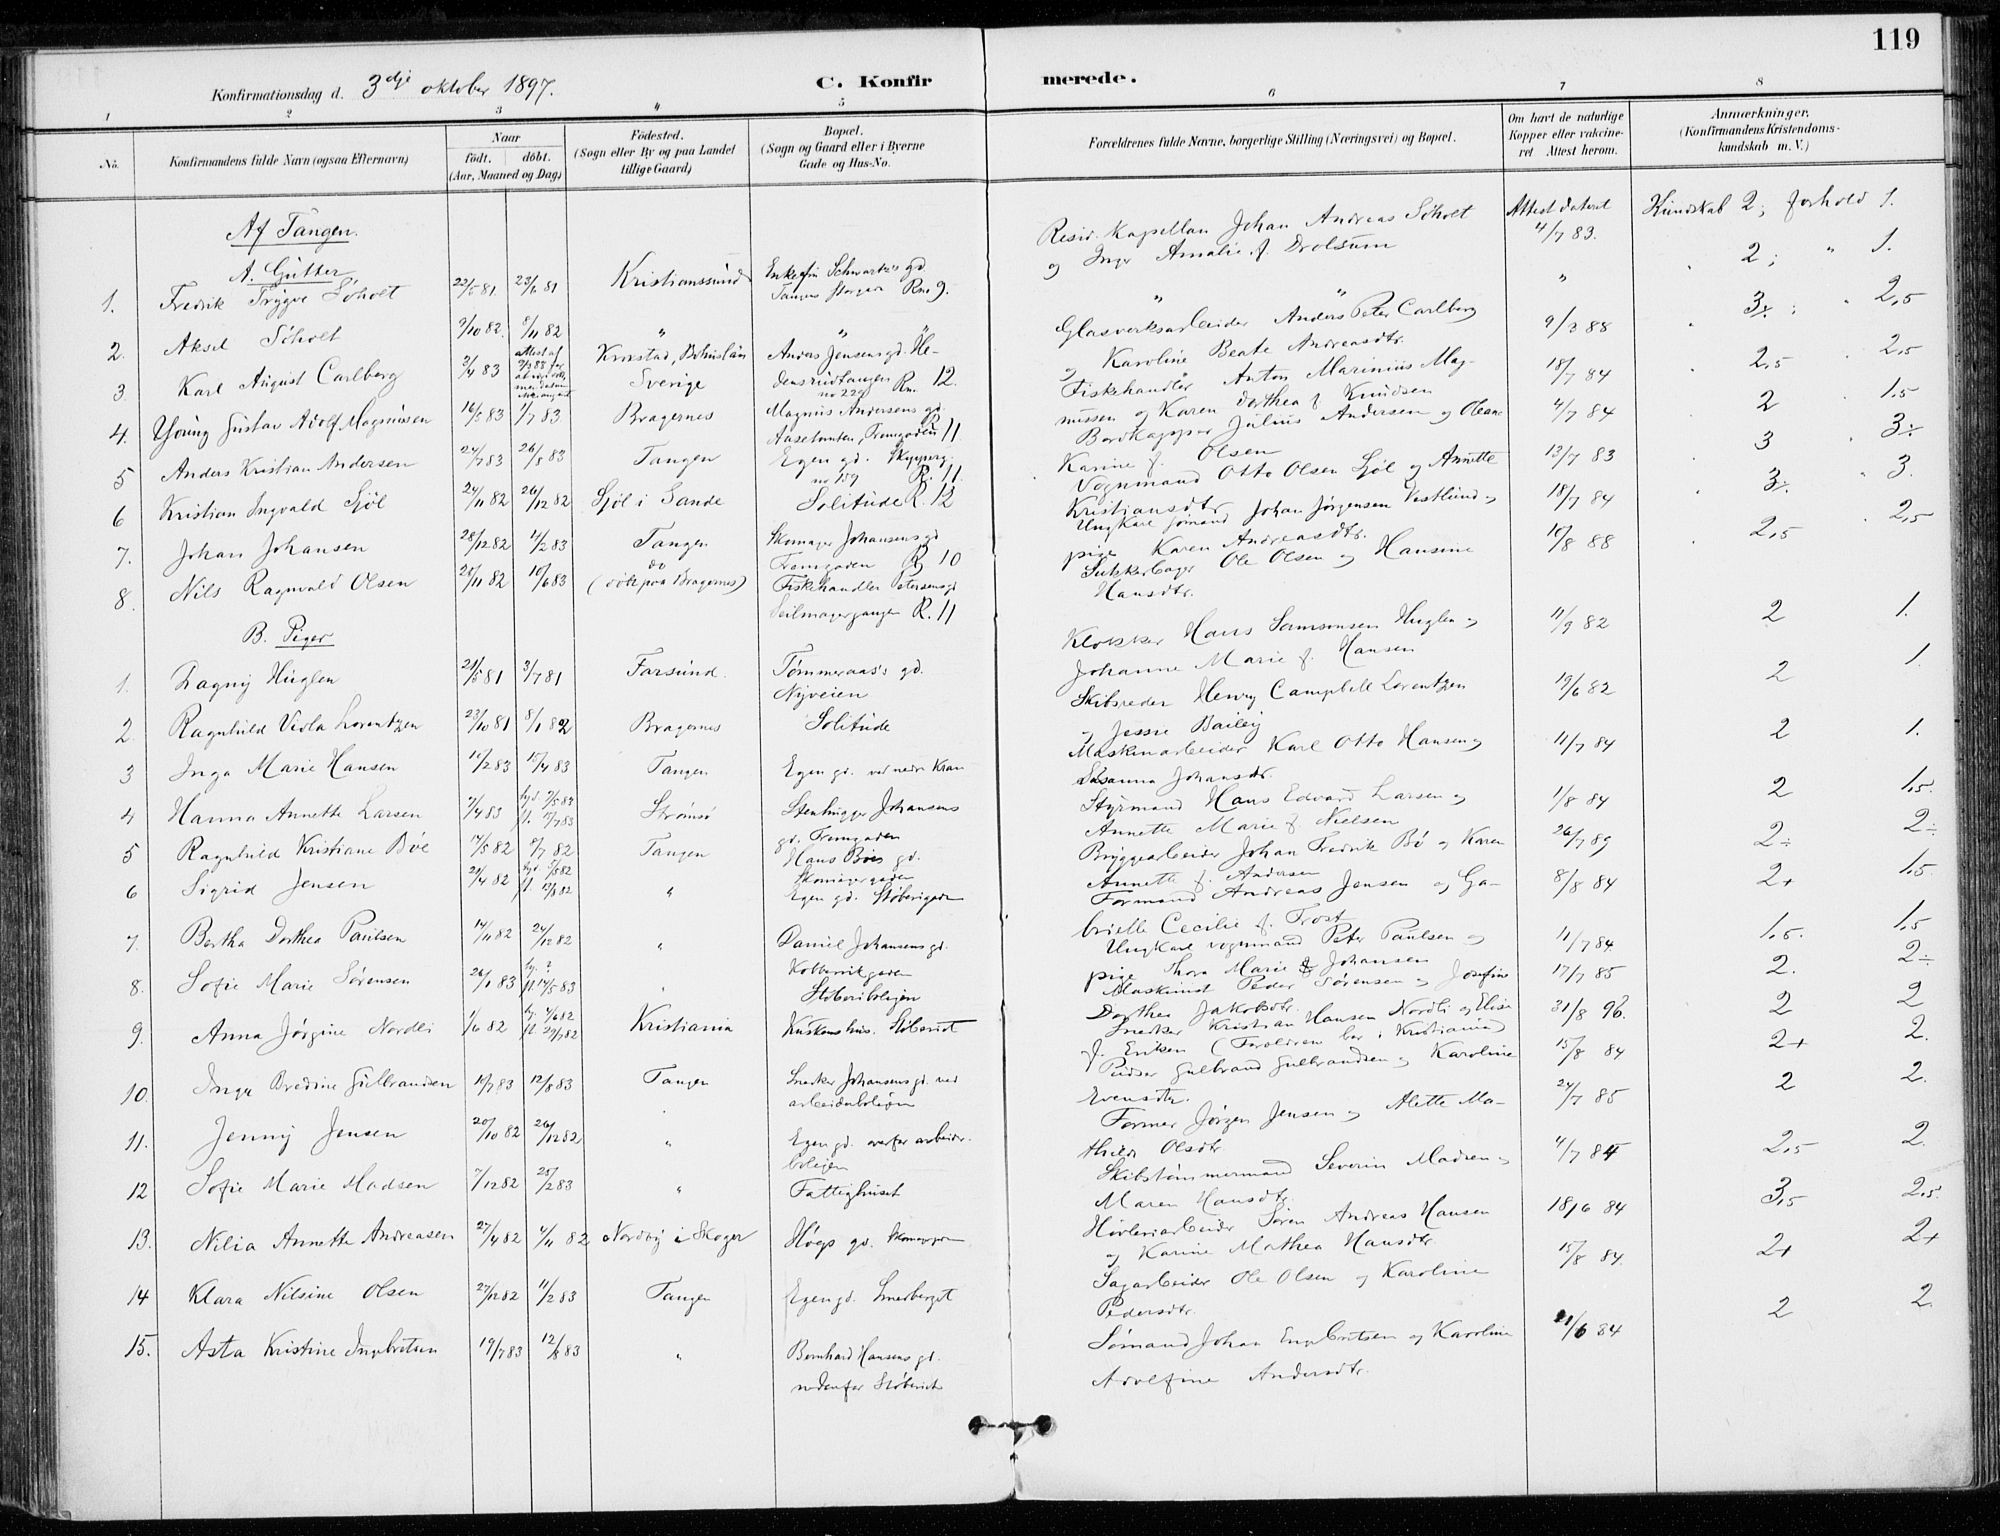 119
Konfirmationsdag d. 3dje oktober 1897.
C. Konfirmerede.
1 2 3 4 5 6 7 8
No. Konfirmandens fulde Navn (ogsaa Efternavn) Naar födt. döbt. (Aar, Maaned og Dag) Födested. (Sogn eller By og paa Landet tillige Gaard) Bopæl. (Sogn og Gaard eller i Byerne Gade og Hus-No. Forældrenes fulde Navne, borgerlige Stilling (Næringsvei) og Bopæl. Om havt de naturlige Kopper eller vakcineret Attest herom. Anmærkninger. (Konfirmandens Kristendomskundskab m. V.)
Af Tangen.
A. Gutter
1. Fredrik Trygve Söholt 22/5 81 23/6 81 Kristianssund Enkefru Schwartz's gd. Tangens Storgade Rn 9. Resid. Kapellan Johan Andreas Söholt og Inga Amalie f. Drolsum Attest dateret 4/7 83. Kundskab 2; forhold 1.
2. Aksel Söholt 9/10 82 8/11 82 " " " " " " 2; " 1.
3 Karl August Carlberg 2/4 83 Krokstad, Bohuslän Sverige Anders Jensens gd. Hedensrudtangen Rn. 12. no 229 Glasverksarbeider Anders Peter Carlberg og Karoline Beate Andreasdtr. 9/3 88 3÷ " 2,5
4. Young Gustav Adolf Magnussen 16/5 83 1/7 83 Bragernes Magnus Andersens gd. Aasetomten, Tromgaden 11 Fiskehandler Anton Marinius Magnussen og Karen Dorthea f. Knudsen 18/7 84 2,5 2,5
5 Anders Kristian Andersen 24/7 83 26/8 83 Tangen Egen gd. Skypperg. no 159 R. 11. Bordkapper Julius Andersen og Oleane Karine f. Olsen 4/7 84 2 1.5
6 Kristian Ingvald Sjöl 24/11 82 26/12 82 Sjöl i Sande Solitude R. 12 Vognmand Otto Olsen Sjöl og Annette Kristiansdtr 13/7 83 3 3÷
7. Johan Johansen 28/12 82 11/2 83 Tangen Skomager Johansens gd Tromgaden R 10 Ungkarl sömand Johan Jörgensen Vestlund og pige Karen Andreasdtr. 18/7 84 3÷ 3.
8. Nils Ragnvald Olsen 20/11 82 10/6 83 do (döbt paa Bragernes) Fiskehandler Petersens gd Seilmagergangen R. 11 Ole Olsen og Hansine Hansdtr. 10/8 88 2,5 2,5
B. Piger
1. Dagny Huglen 21/5 81 3/7 81 Farsund. Tömmeraas's gd. Nyveien Klokker Hans Samsonsen Huglen og Johanne Marie f. Hansen 11/9 82 2 1.
2 Ragnhild Viola Lorentzen 23/10 81 8/1 82 Bragernes Solitude Skibsreder Henry Campbell Lorentzen og Jessie Bailey 19/6 82 2 1.
3 Inga Marie Hansen 10/2 83 15/4 83 Tangen Egen gd. ved nedre Kran Maskinarbeider Karl Otto Hansen og Susanna Johansdtr. 11/7 84 2 1.
4 Hanna Annette Larsen 2/4 83 Strömsö Stenhugger Johansens gd. Tromgaden Styrmand Hans Edvard Larsen og Annette Marie f. Nielsen 1/8 84 2 1,5.
5 Ragnhild Kristiane Böe 14/5 82 9/7 82 Tangen Hans Böes gd. Skomagergaden Bryggearbeider Johan Fredrik Bö og Karen Annette f. Andersen 26/7 89 2÷ 2÷
6 Sigrid Jensen 29/4 82 " Egen gd. Stöberigaden Formand Andreas Jensen og Gabrielle Cecilie f. Trost 8/8 84 2+ 1.5.
7. Bertha Dorthea Paulsen 14/11 82 24/12 82 " Daniel Johansens gd. Kobbervikgaden Ungkarl vognmand Peter Paulsen og pige Thora Marie Johansen 11/7 84 1,5. 1,5
8. Sofie Marie Sörensen 26/1 83 fl. 14/5 83 " Stöberiboligen Maskinist Peder Sörensen og Josefine Dorthea Jakobsdtr. 17/7 85 2. 2÷
9. Anna Jörgine Nordli 1/6 82 Kristiania Kuskens hus. Stöberiet Snedker Kristian Hansen Nordli og Elise f. Eriksen (Forældrene bor i Kristiania) 31/8 96. 2 2
10. Inga Bredine Gulbrandsen 10/7 83 12/8 83 Tangen Snedker Johansens gd. ved arbeiderboligen Pudser Gulbrand Gulbrandsen og Karoline Evensdtr. 15/8 84 2+ 2.
11. Jenny Jensen 20/10 82 26/12 82 " Egen gd. overfor arbeider-boligen Former Jörgen Jensen og Alette Mathilde Olsdtr 24/7 85 2 2.
12 Sofie Marie Madsen 7/12 82 25/2 83 " Fattighuset Skibstömmermand Severin Madsen og Maren Hansdtr. 4/7 84 2,5 2.
13. Nilia Annette Andreasen 27/4 82 4/11 82 Nordby i Skoger Höegs gd. Hövleriarbeider Sören Andreas Hansen og Karine Mathea Hansdtr 18/6 84 3,5 2,5.
14 Klara Nilsine Olsen 27/12 82 11/2 83 Tangen Egen gd. Smedberget Sagarbeider Ole Olsen og Karoline Pedersdtr. 15/8 84. 2+ 2+
15. Asta Kristine Ingebretsen 19/7 83 12/8 83 " Bernhard Hansens gd. nedenfor Stöberiet Sömand Johan Engebretsen og Karoline Adolfine Andersdtr. 21/6 84 2 2.